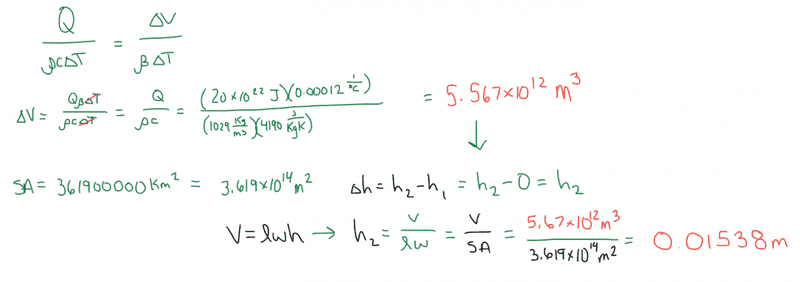 Q/ρcΔT = ΔV/βΔT
ΔV = QβΔT/ρcΔT = Q/ρc = (20×10²² J)(0.00012 1/°C)/(1029 Kg/m3)(4190 J/KgK) = 5.567×10¹² m³
↓
SA = 361900000 Km² = 3.619×10¹⁴ m² Δh = h₂-h₁ = h₂-0 = h₂
V = lwh → h₂ = V/lw = V/SA = 5.67×10¹² m³/3.619×10¹⁴ m² = 0.01538 m